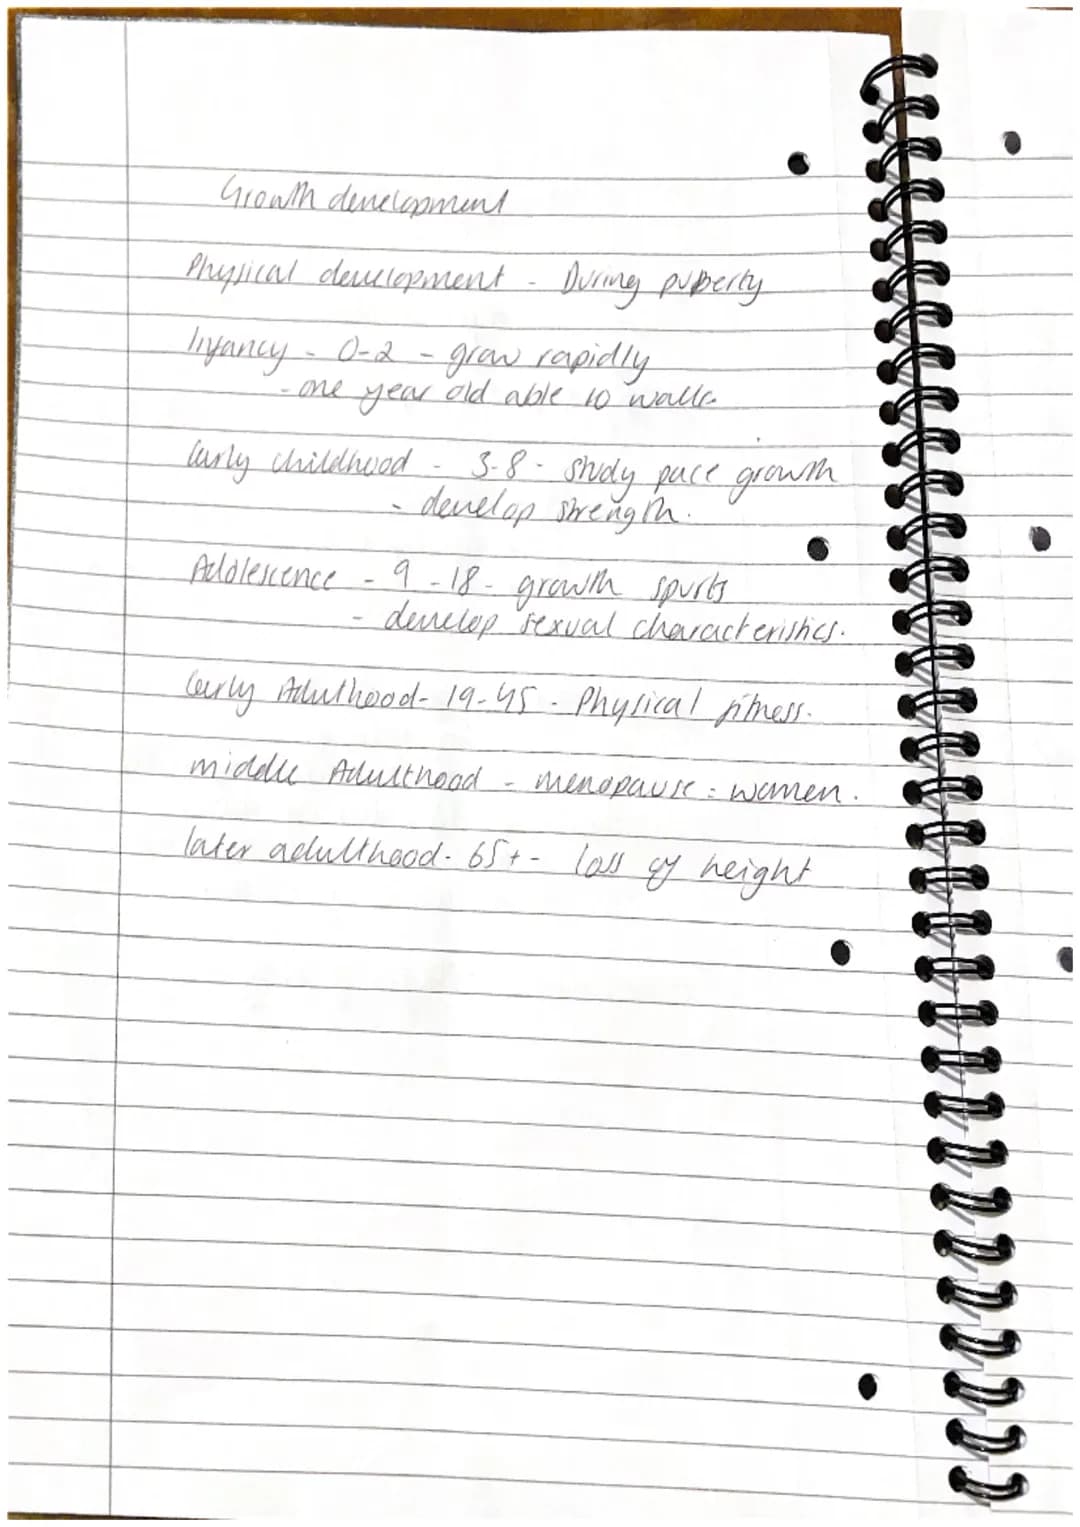 Growth development
Physical development - During puberty
Infancy - 0-2 - grow rapidly
- one year old able to walk
Early childhood - 3-8 - study pace growth
- develop strength.
Adolescence - 9-18 - growth spurts
- develop sexual characteristics.
Early Adulthood - 19-45 - Physical fitness.
middle Adulthood - menopause = women.
later adulthood - 65+ - loss of height